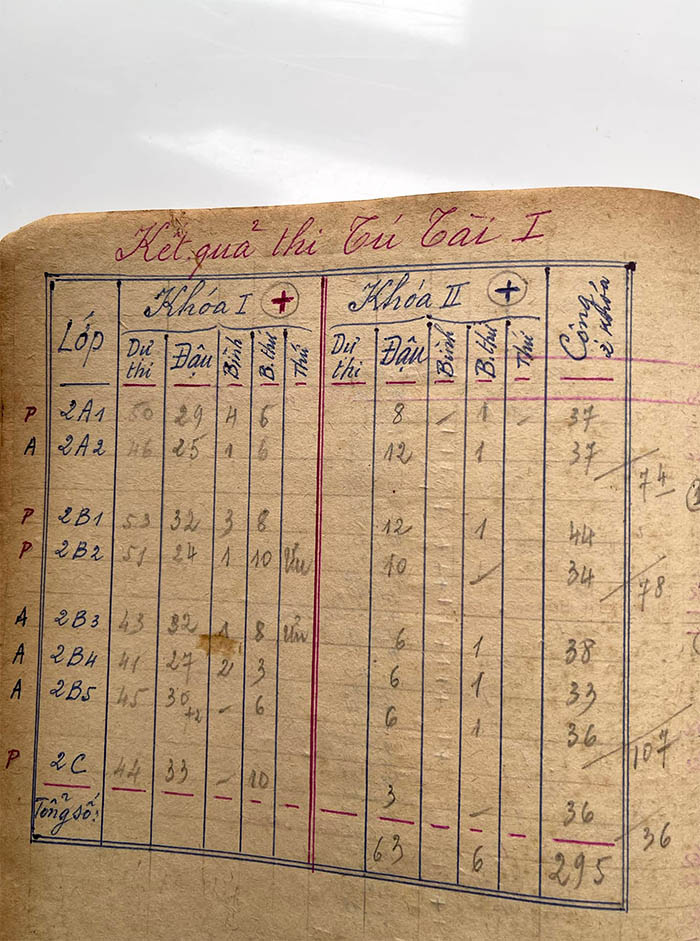 Kết quả thi Tú Tài I
Lớp Khóa I + Khóa II + Cộng 2 khóa
Dự thi Đậu Bình B.thứ Thứ Dự thi Đậu Bình B.thứ Thứ
P 2A1 50 29 4 6 8 - 1 - 37
A 2A2 46 25 1 6 12 1 37
74
P 2B1 53 32 3 8 12 1 44
P 2B2 51 24 1 10 10 34
78
A 2B3 43 32 1 8 6 1 38
A 2B4 41 27 2 3 6 1 33
A 2B5 45 30 +2 - 6 6 1 36
107
P 2C 44 33 - 10 3 - 36
36
Tổng số: 63 6 295